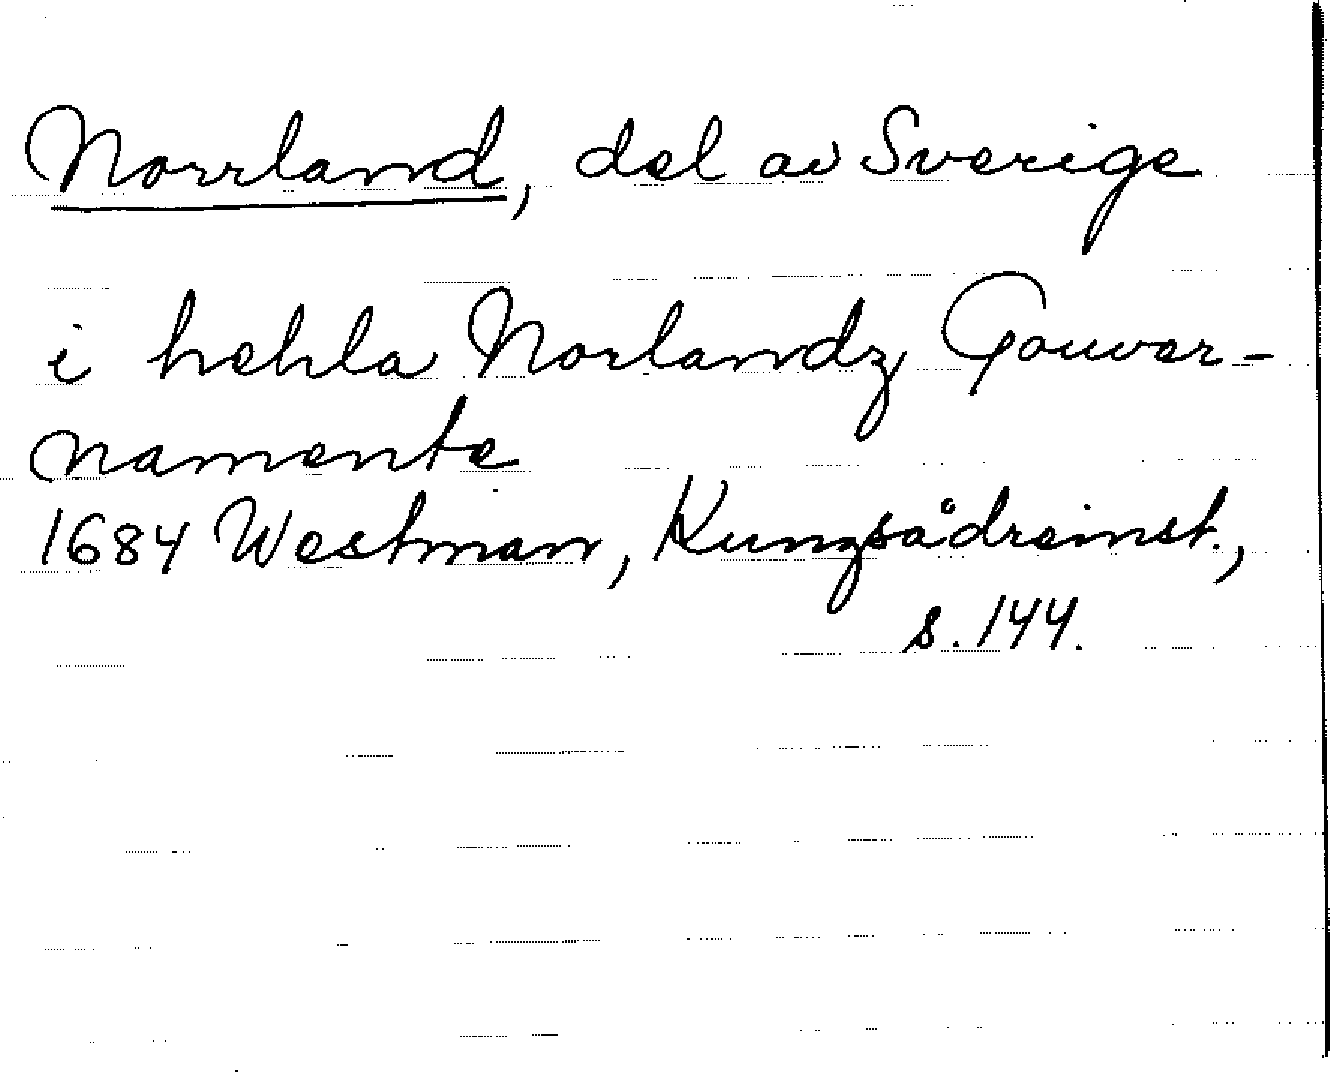 Norrland, del av Sverige
i hehla Norlandz Gouver-
nemente
1684 Westman, Kungsådreinst.,
s. 144.